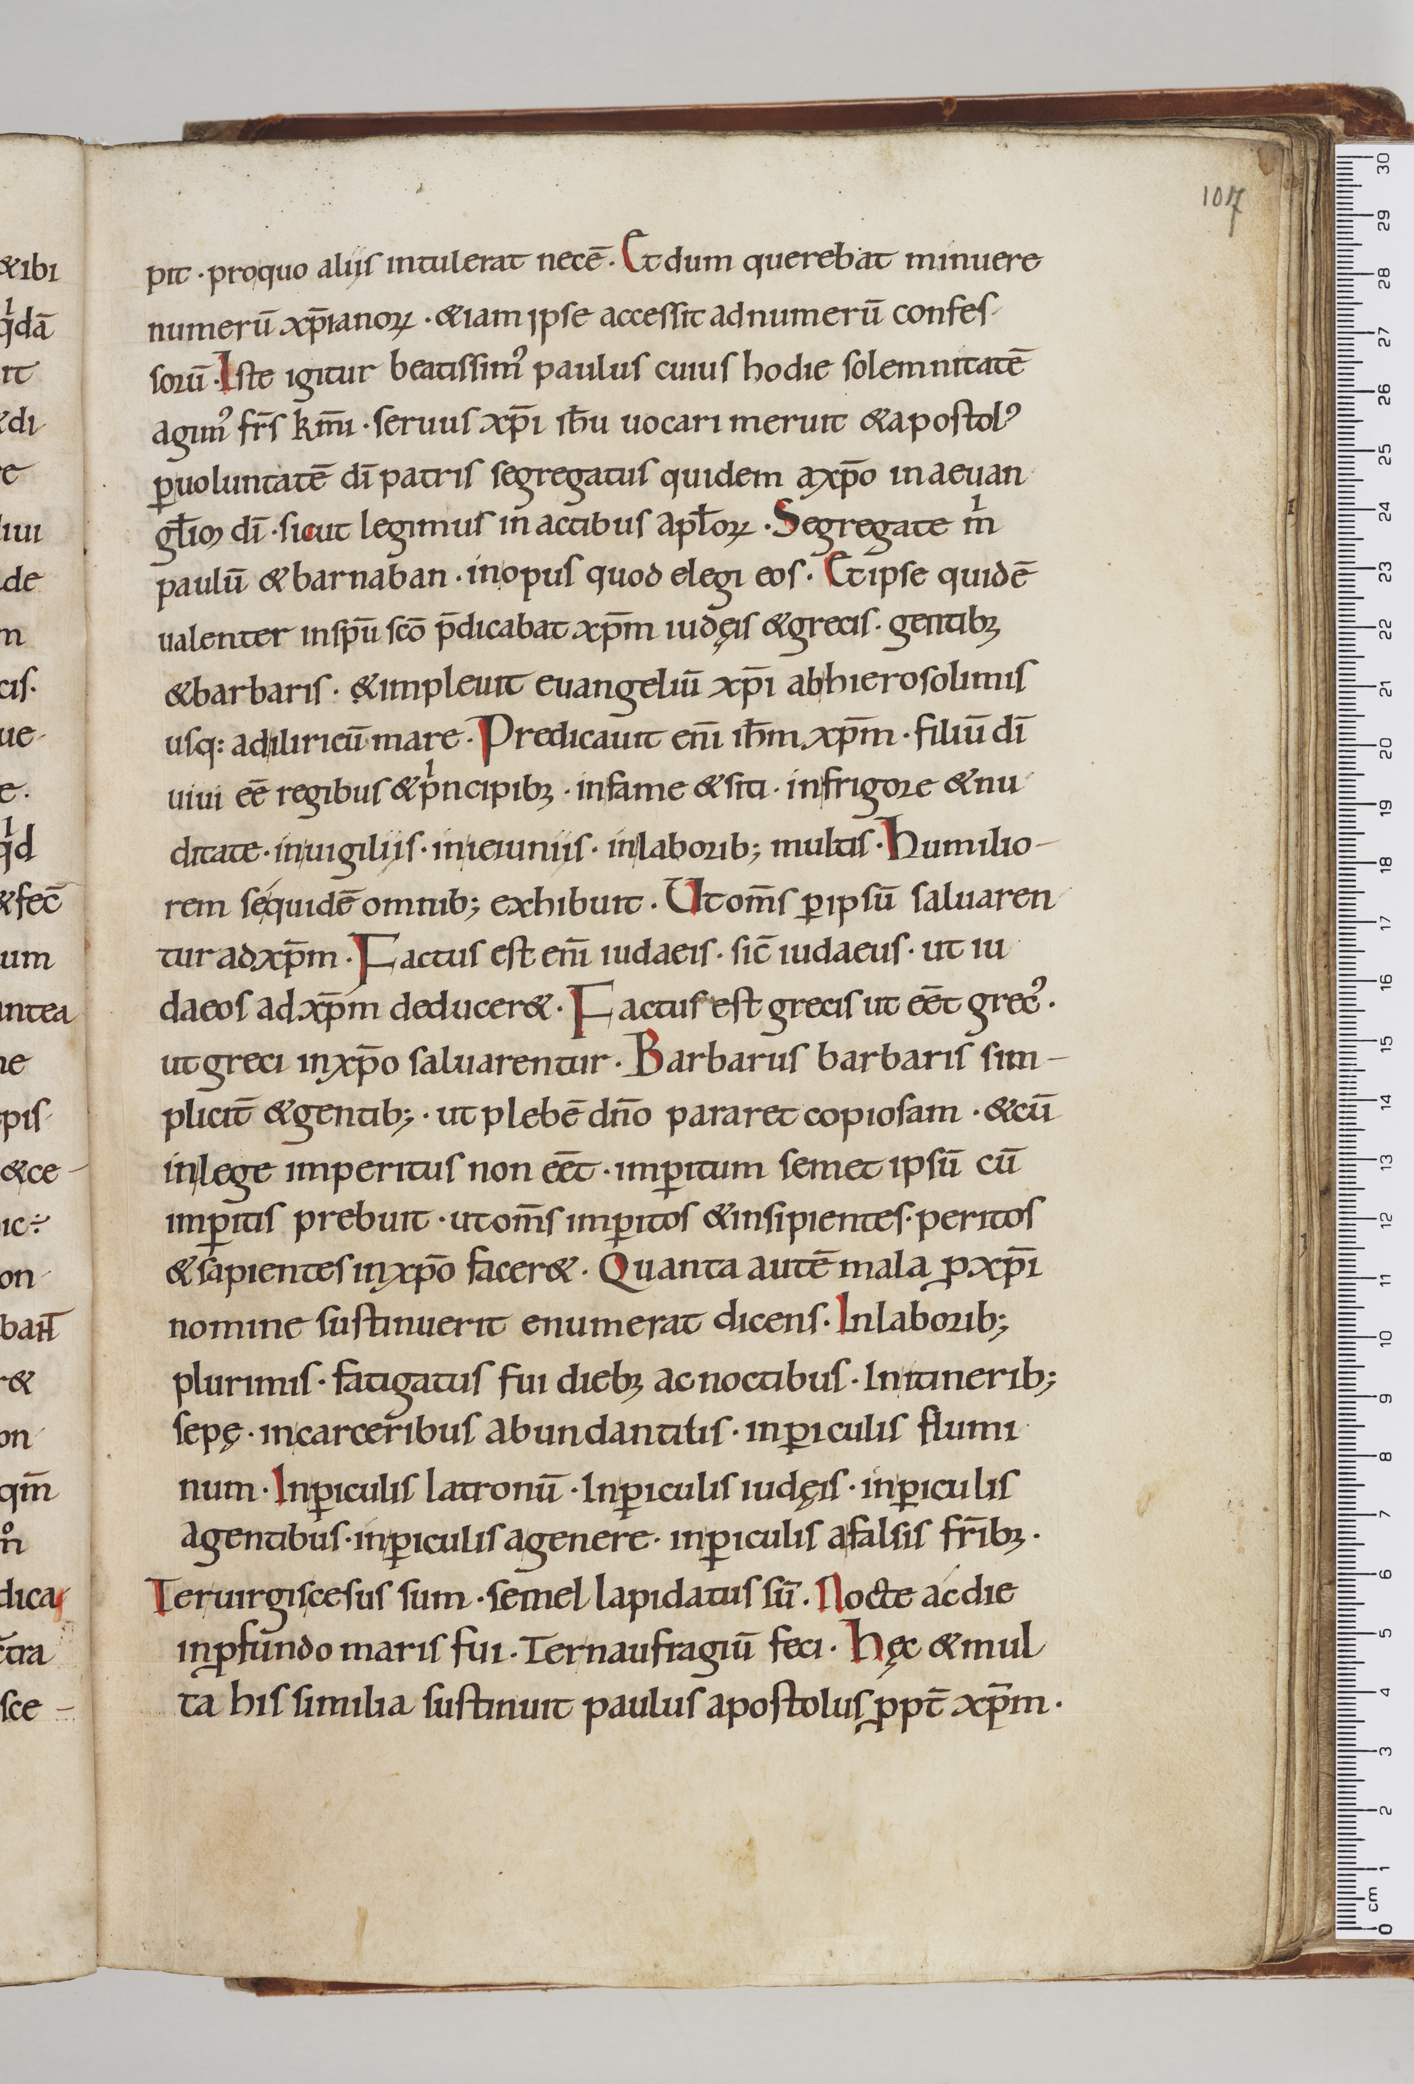 107
pit · proquo aliis intulerat necē · Et dum querebat minuere
numerū xp̄ianoꝝ · &iam ipse accessit adnumerū confes-
sorū · Iste igitur beatissim᷒ paulus cuius hodie solemnitatē
agim᷒ fr̄s km̄i · seruus xp̄i ih̄u uocari meruit &apostol᷒
ꝑuoluntatē dī patris segregatus quidem axp̄o inaeuan
gl̄ioꝫ dī · sicut legimus in actibus apl̄oꝝ · Segregate mͥ
paulū &barnaban · inopus quod elegi eos · Et ipse quidē
ualenter inspū scō p̄dicabat xp̄m iudęis &grecis · gentibꝫ
&barbaris · &impleuit euangeliū xp̄i abhierosolimis
usq: adiliricū mare · Predicauit eni̅ ih̄m xp̄m · filiū dī
uiui eē regibus &pͥncipibꝫ · infame &siti · infrigore &nu
ditate · inuigiliis · inieiuniis · inlaborib; multis · Humilio-
rem séquidē omnib; exhibuit · Ut om̄s ꝑipsū saluaren
tur adxp̄m · Factus est eni̅ iudaeis · sic̄ iudaeus · ut iu
daeos adxp̄m deducer& · Factus est grecis ut eēt grec᷒ ·
ut greci inxp̄o saluarentur · Barbarus barbaris sim-
plicit̄ &gentib; · ut plebē dn̄o pararet copiosam · &cū
inlege imperitus non eēt · imꝑitum semet ipsū cū
imꝑitis prebuit · ut om̄s imꝑitos &insipientes · peritos
&sapientes inxp̄o facer& · Quanta autē mala ꝓ xp̄i
nomine sustinuerit enumerat dicens · Inlaborib;
plurimis · fatigatus fui diebꝫ ac noctibus · Initinerib;
sepę · incarceribus abundantitis · inꝑiculis flumi
num · Inꝑiculis latronū · Inꝑiculis iudęis · inꝑiculis
agentibus · inꝑiculis agenere · inꝑiculis afalsis fr̄ibꝫ ·
Teruirgiscesus sum · semel lapidatus sū · Nocte ac die
inꝓfundo maris fui · Ternaufragiū feci · Hęc &mul
ta his similia sustinuit paulus apostolus ꝓpt̄ xp̄m ·
&ibi
qͥdā
it
&di
re
de
m
cis.
ue-
e.
qͥd
&fec̄
um
antea
ne
pis
&ce-
ic÷
on
r&
on
qm̄
dica
sce-
30
29
28
27
26
25
24
23
22
21
20
19
18
17
16
15
14
13
12
11
10
9
8
7
6
5
4
3
2
1
cm
0